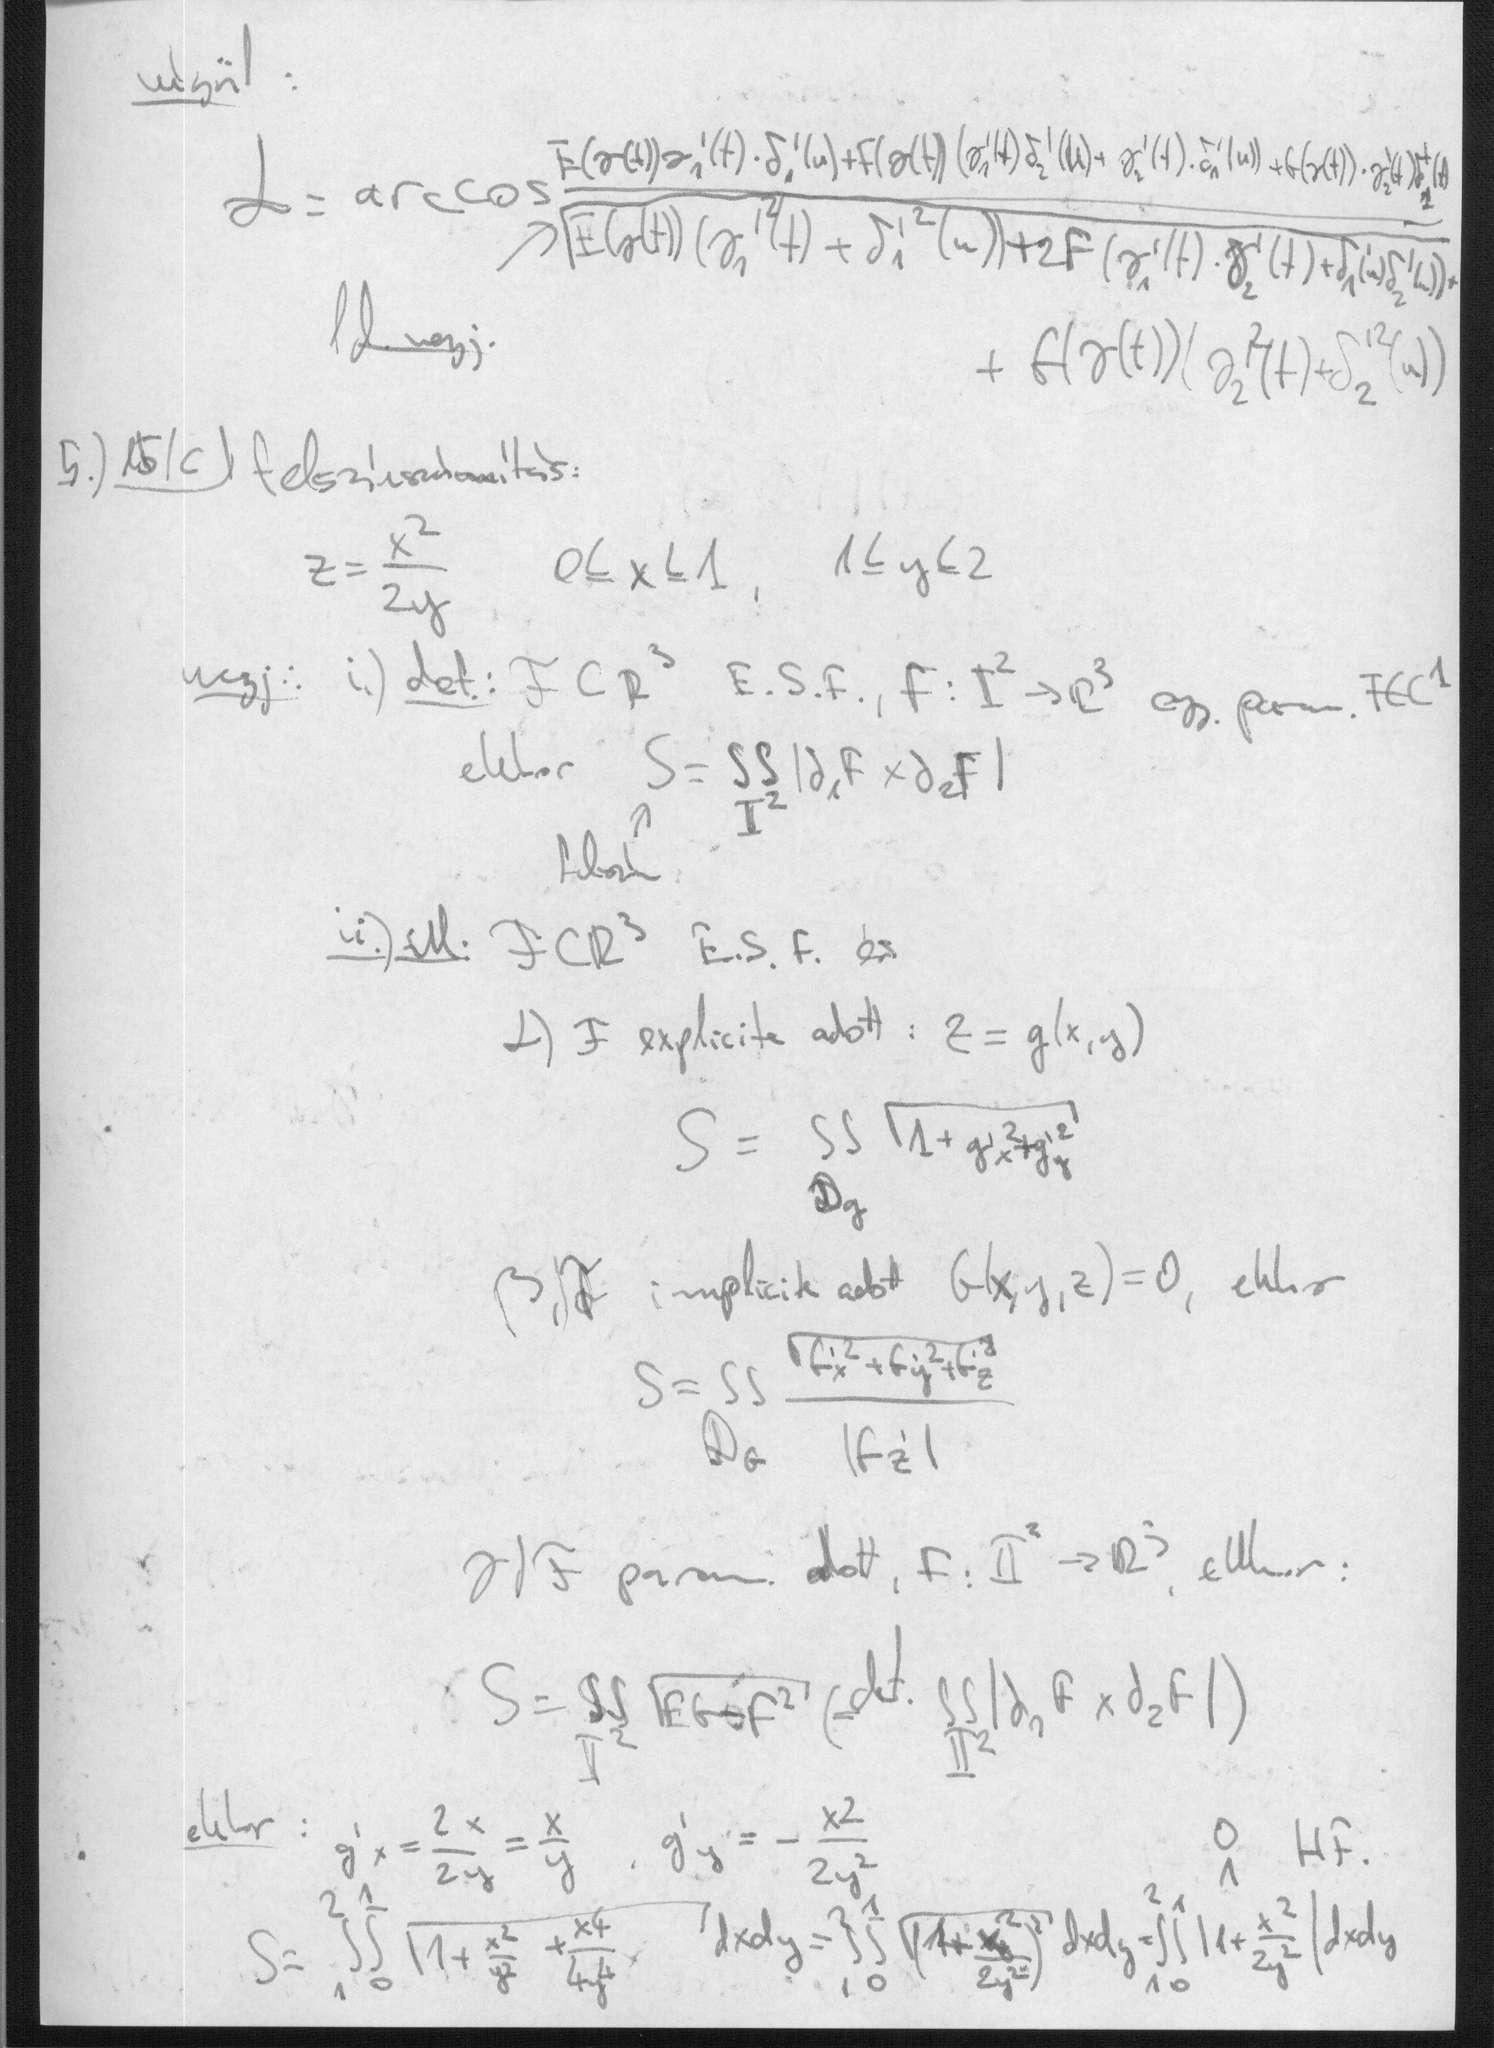 végül:
α = arccos E(γ(t))γ₁'(t)·δ₁'(u)+F(γ(t))(γ₁'(t)δ₂'(u)+γ₂'(t)·δ₁'(u))+G(γ(t))·γ₂'(t)δ₂'(t) / √E(γ(t))(γ₁'²(t)+δ₁'²(u))+2F(γ₁'(t)·γ₂'(t)+δ₁'(u)δ₂'(u))+
ld. megj.
+ G(γ(t))(γ₂'²(t)+δ₂'²(u))
5.) 15/c) felszínszámítás:
z = x²/2y 0≤x≤1, 1≤y≤2
megj.: i.) def.: F⊂R³ E.S.F., F: I²→R³ egy. param. F∈C¹
ekkor S = ∫∫ |∂₁F × ∂₂F|
I²
felszín
ii.) áll. F⊂R³ E.S.F. és
α) F explicite adott: z = g(x,y)
S = ∫∫ √1+g'x²+g'y²
Dg
β) F implicite adott G(x,y,z)=0, ekkor
S = ∫∫ √G'x²+G'y²+G'z² / |G'z|
D_G
γ) F param. adott, F: I²→R³, ekkor:
S = ∫∫ √EG-F² (=def. ∫∫ |∂₁F × ∂₂F|)
I² I²
ekkor: g'x = 2x/2y = x/y, g'y = - x²/2y² 0 HF.
1
S = ∫₁²∫₀¹ √1+x²/y²+x⁴/4y⁴ dxdy = ∫₁²∫₀¹ √(1+x²/2y²)² dxdy = ∫₁²∫₀¹ |1+x²/2y²| dxdy